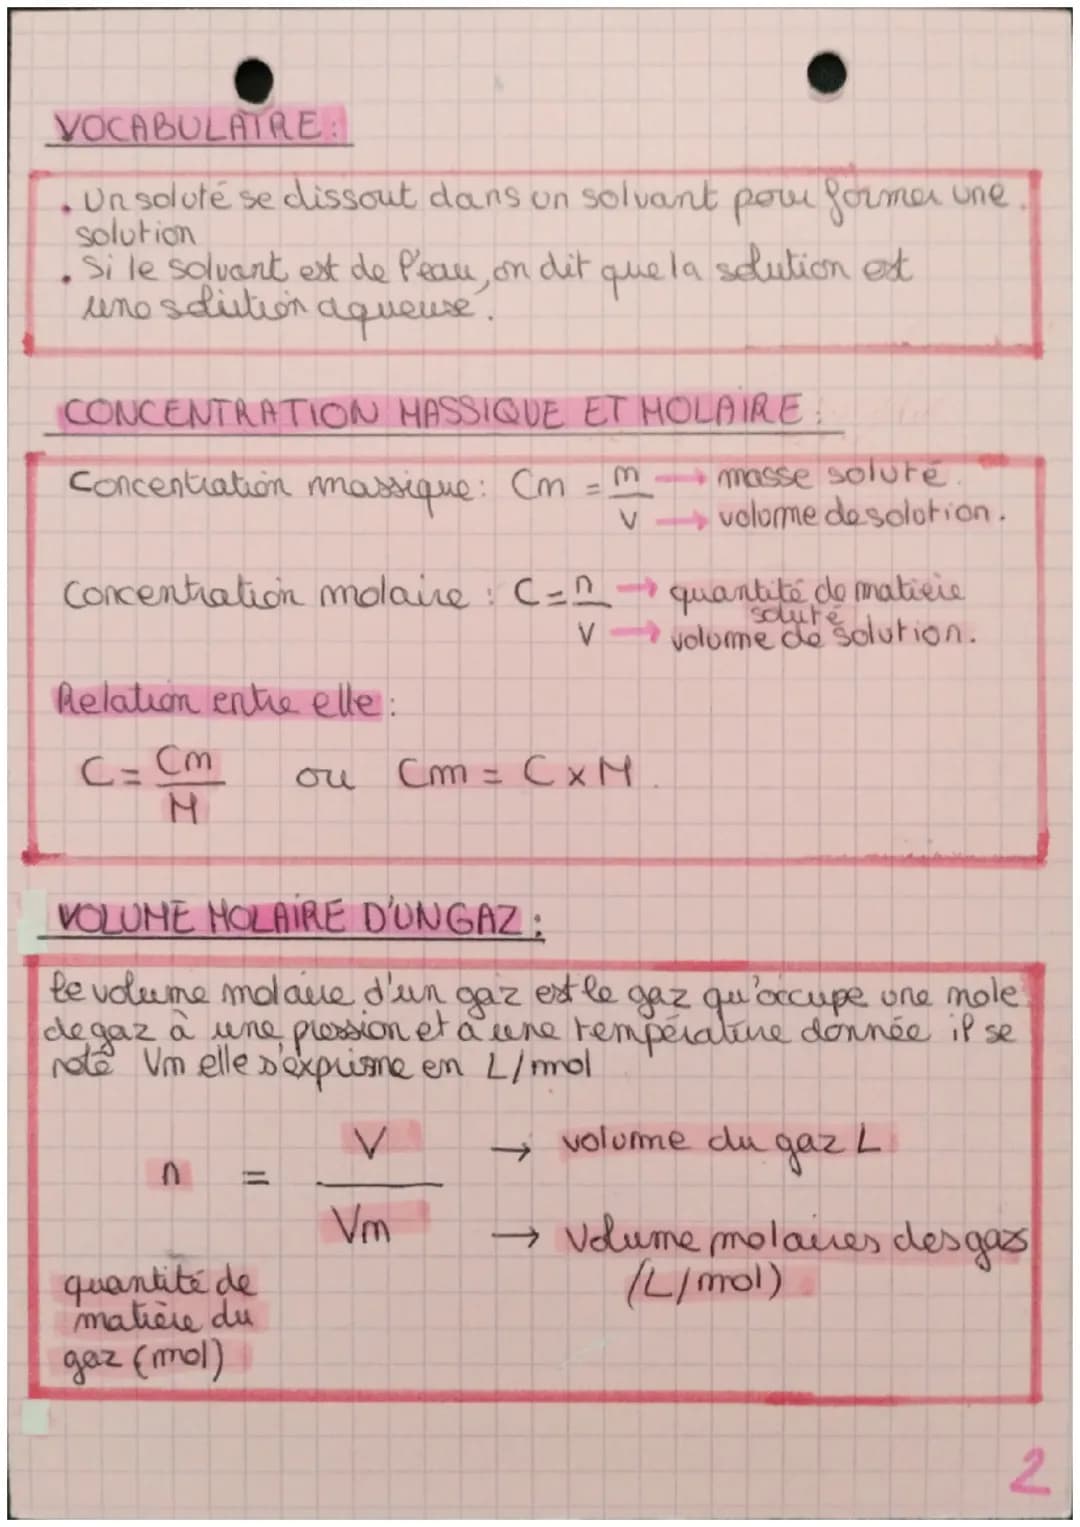 VOCABULAIRE:
. Un soluté se dissout dans un solvant pour former une.
solution
. Si le solvant est de l'eau, on dit que la solution est
une solution aqueuse.
CONCENTRATION MASSIQUE ET MOLAIRE:
Concentration massique: Cm = m → masse soluté.
V → volume de solution.
Concentration molaire : C = n → quantité de matière
soluté
V → volume de solution.
Relation entre elle:
C = Cm ou Cm = C x M.
M
VOLUME MOLAIRE D'UN GAZ :
Le volume molaire d'un gaz est le gaz qu'occupe une mole
de gaz à une pression et à une température donnée il se
note Vm elle s'exprime en L/mol
V → volume du gaz L
n =
Vm → Volume molaires des gazs
(L/mol)
quantité de
matière du
gaz (mol)
2